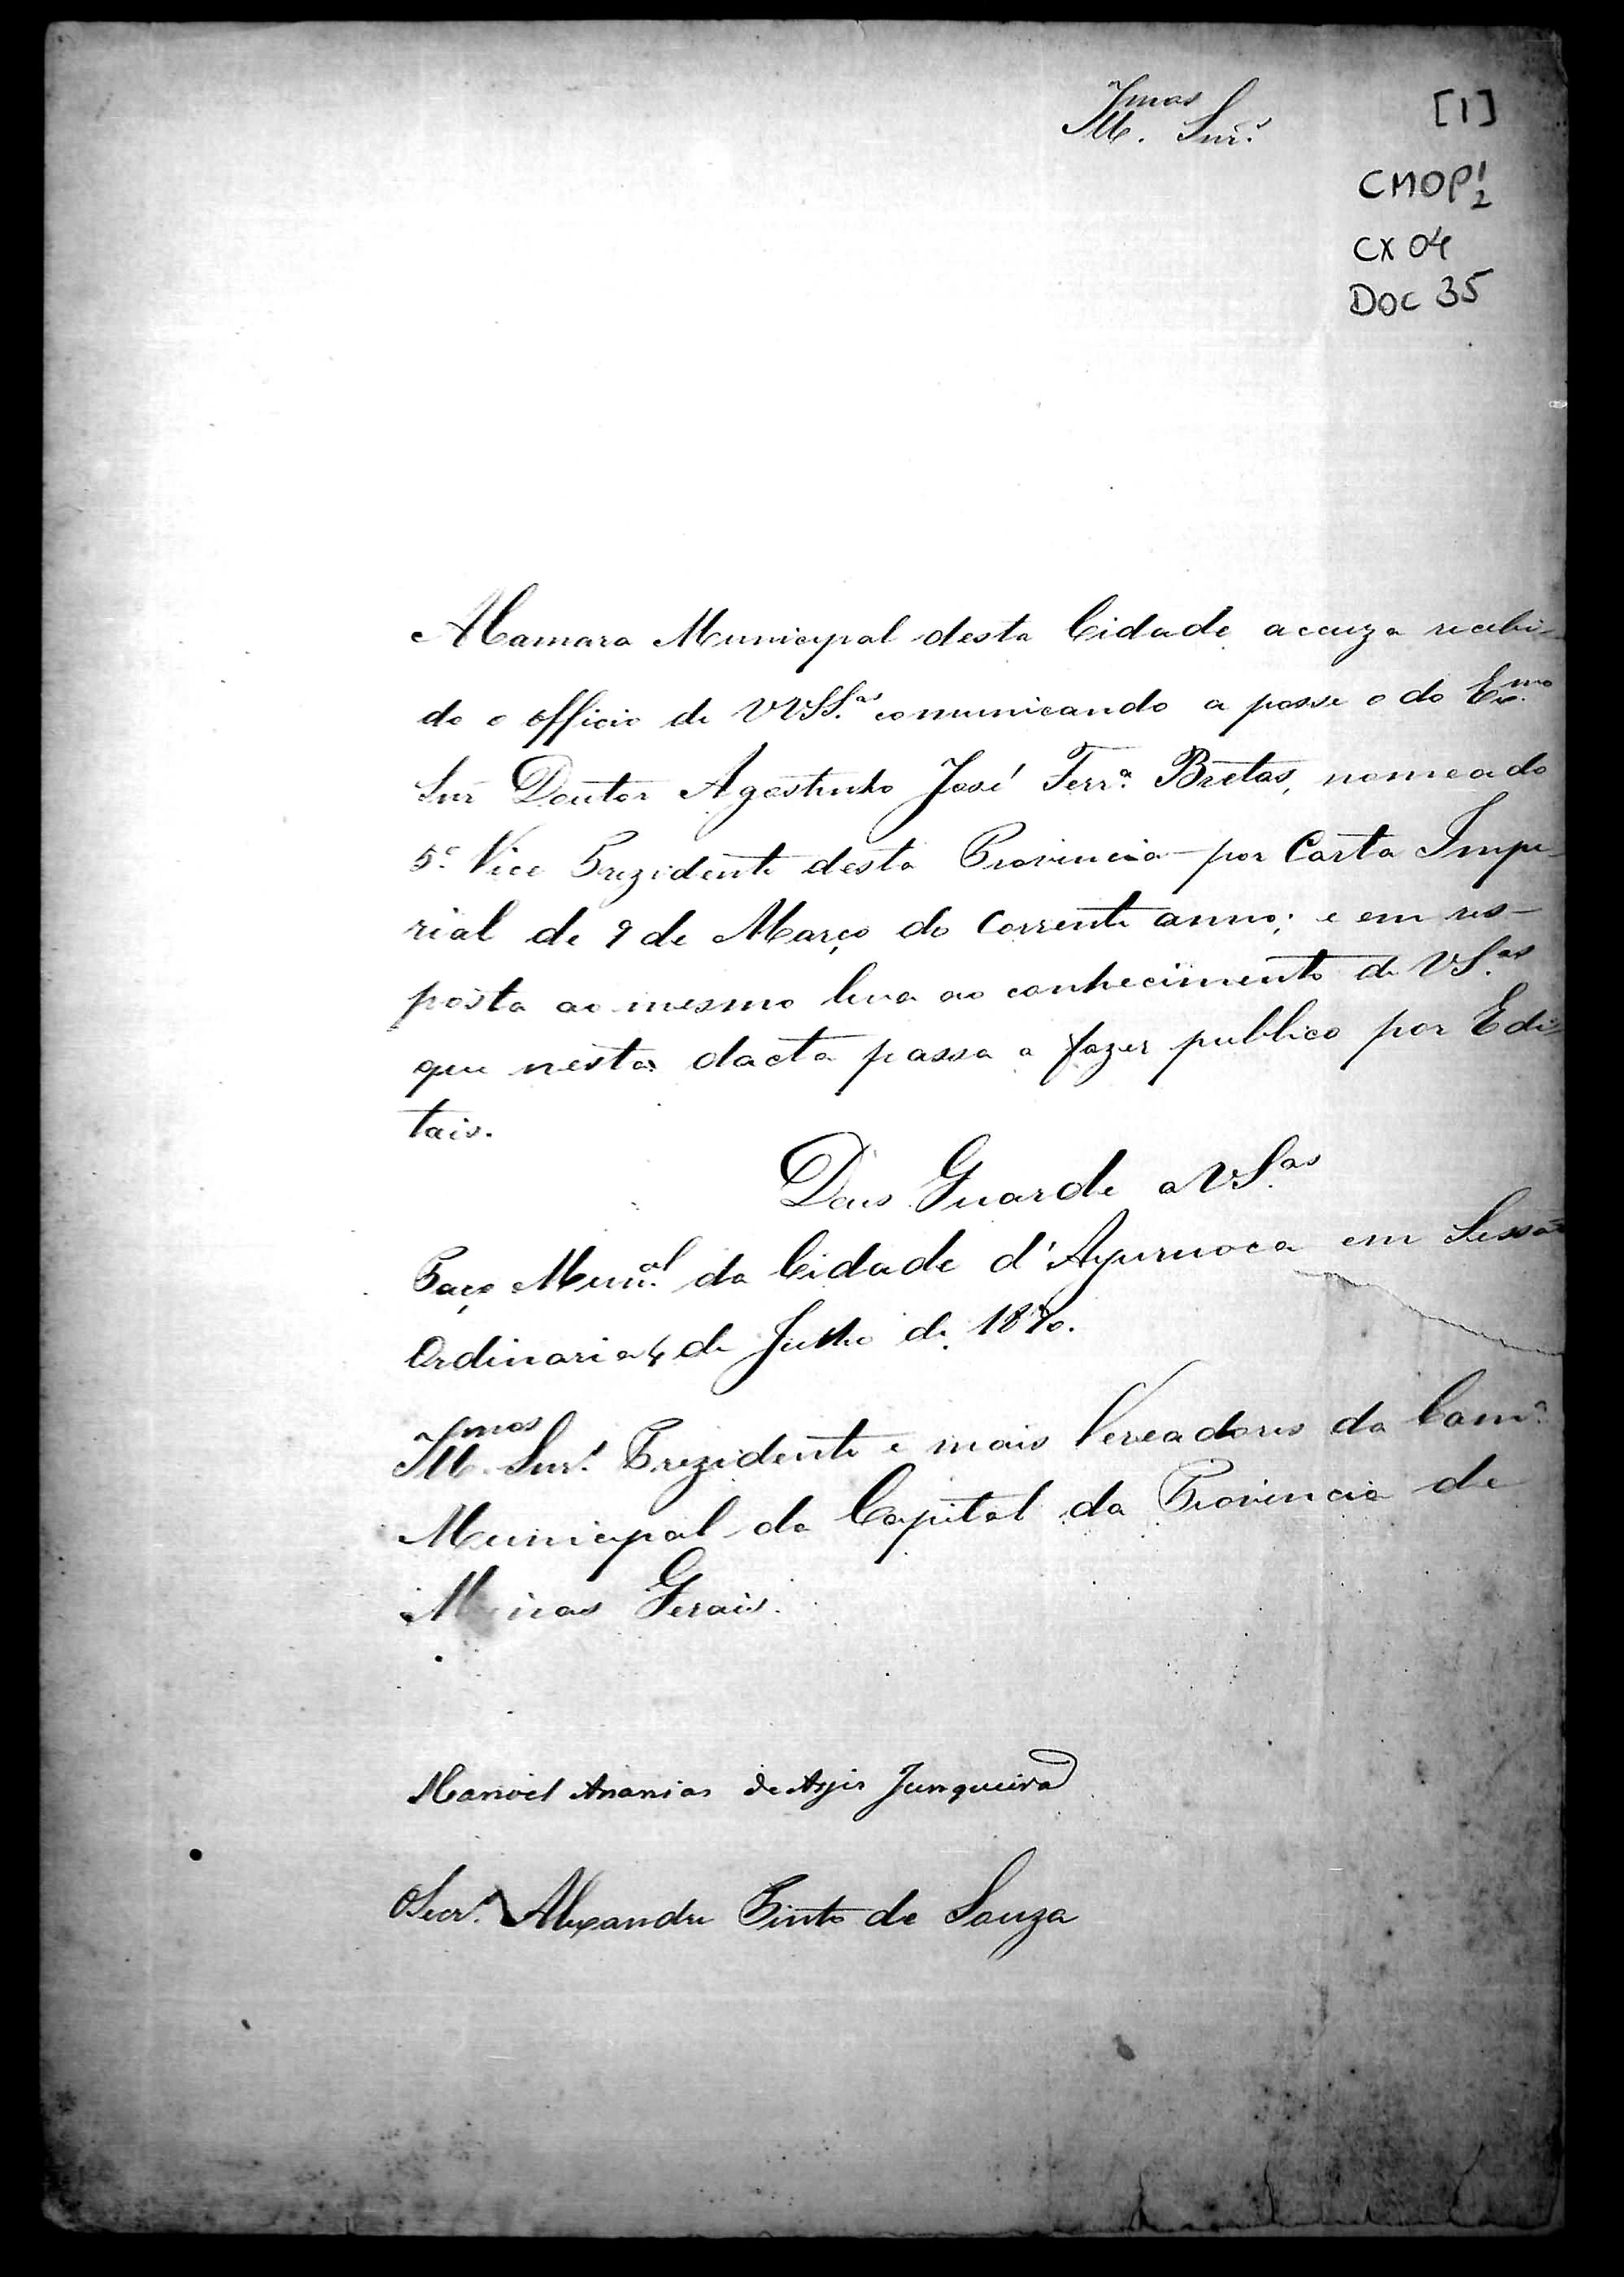 Illmos. Snrs.
[1]
CMOP 1/2
CX 04
DOC 35
A Camara Municipal desta Cidade accuza recebi-
do o officio de VVSSas. comunicando a posse o do Exmo.
Snr Doutor Agostinho José Ferra. Bretas, nomeado
5º Vice Prezidente desta Provincia por Carta Impe-
rial de 9 de Março do Corrente anno; e em res-
posta ao mesmo leva ao conhecimento de VSas.
que nesta dacta passa a fazer publico por Edi-
tais.
Deos Guarde a VSas.
Paço Munal. da Cidade d'Ayuruoca em Sessão
Ordinaria 4 de de 1870.
Illmos. Snrs. Prezidente e mais Vereadores da Cama.
Municipal da Capital da Provincia de
Minas Gerais.
Manoel Ananias de Junqueira
O Secro. Alexandre Pinto de Souza